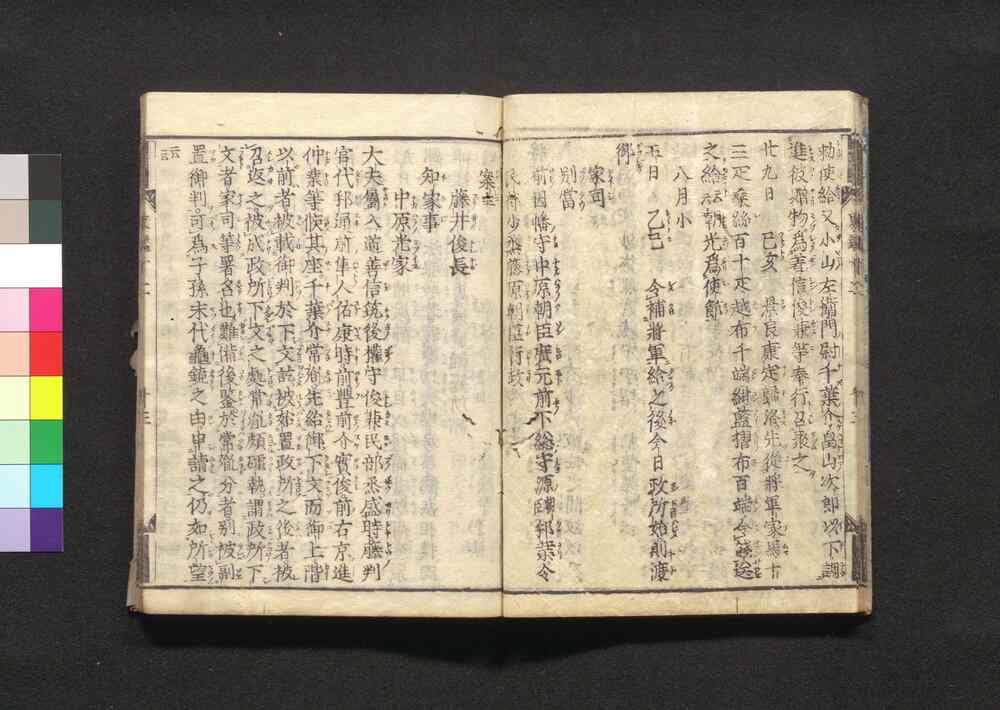 勅使給又小山左衛門尉千葉介畠山次郎以下調
進役贈物爲善信俊兼等奉行召聚之
廿九日　己亥　景良康定歸洛先從將軍家馬十
三疋桑絲百十疋越布千端紺藍摺布百端令餞送
之給云云朝光爲使節
八月小
五日　乙巳　令補將軍給之後今日政所始則渡
御
家司
別當
前因幡守中原朝臣廣元前下総守源朝臣邦業令
民部少丞藤原朝臣行政
案主
藤井俊長
知家事
中原光家
大夫屬入道善信筑後權守俊兼民部丞盛時藤判
官代邦通前隼人佑康時前豐前介實俊前右京進
仲業等候其座千葉介常胤先給御下文而御上階
以前者被載御判於下文訖被始置政所之後者被
召返之被成政所下文之處常胤頗確執謂政所下
文者家司等署名也難備後鑒於常胤分者別被副
置御判可爲子孫末代龜鏡之由申請之仍如所望
云云